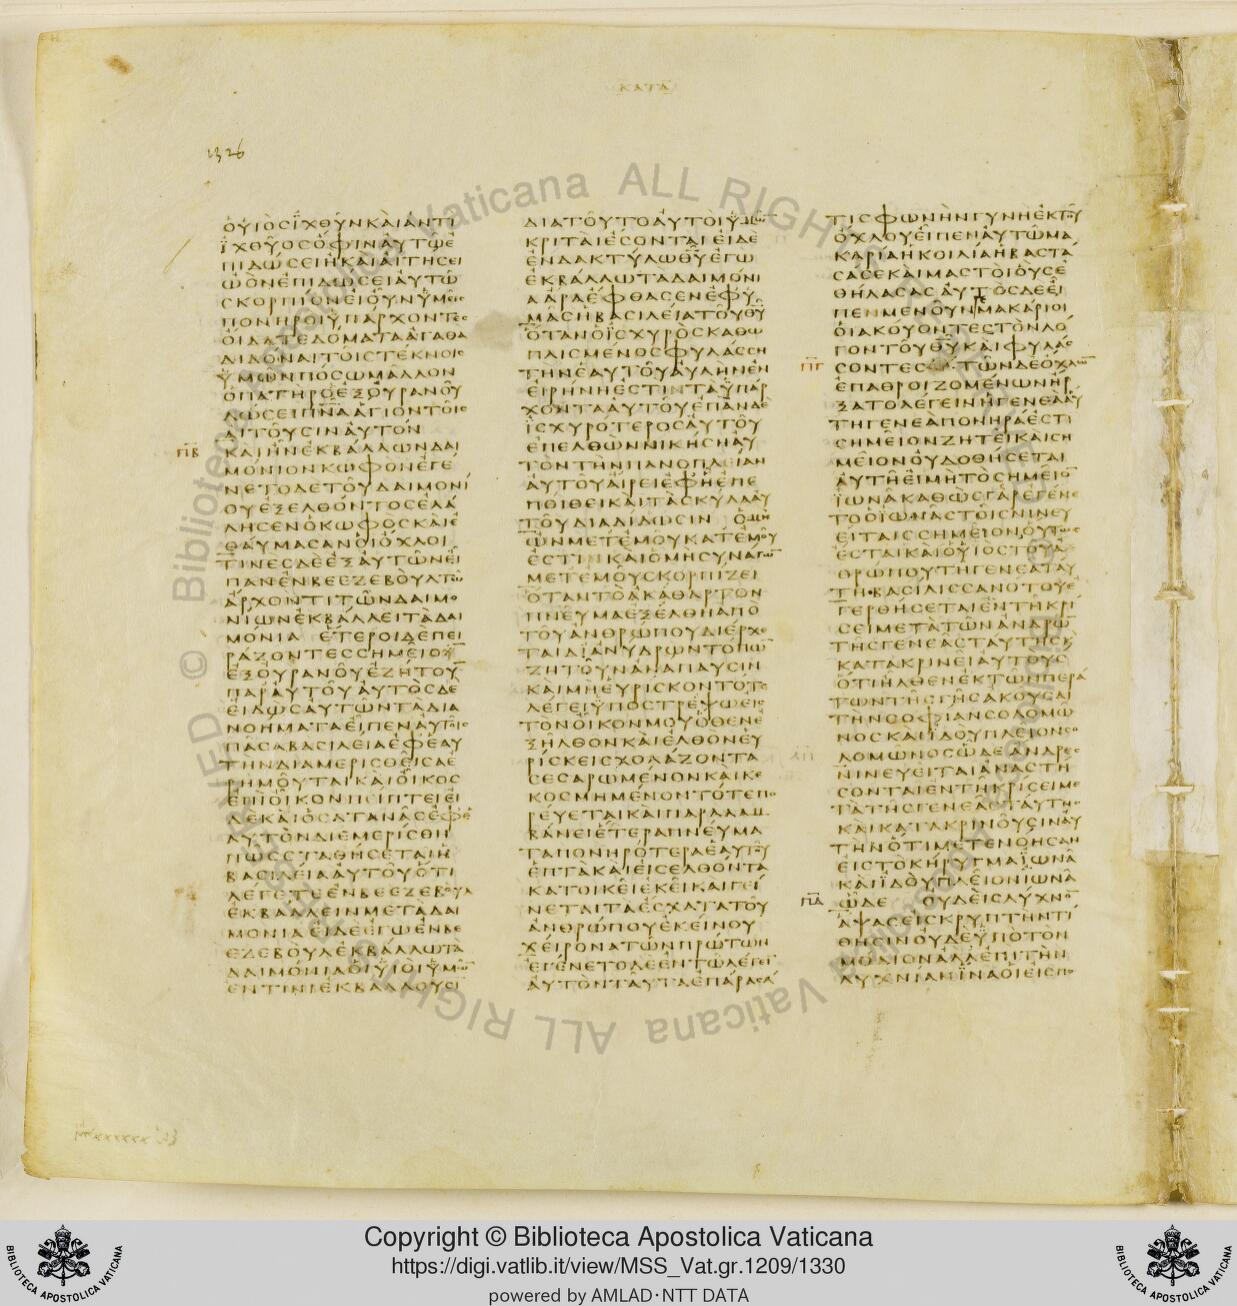 ΚΑΤΑ
1326
ΟΥΙΟΣΙΧΘΥΝΚΑΙΑΝΤΙ
ΙΧΘΥΟΣΟΦΙΝΑΥΤΩΕ
ΠΙΔΩΣΕΙΗΚΑΙΑΙΤΗΣΕΙ
ΩΟΝΕΠΙΔΩΣΕΙΑΥΤΩ
ΣΚΟΡΠΙΟΝΕΙΟΥΝΥΜΕΙΣ
ΠΟΝΗΡΟΙΥΠΑΡΧΟΝΤΕΣ
ΟΙΔΑΤΕΔΟΜΑΤΑΑΓΑΘΑ
ΔΙΔΟΝΑΙΤΟΙΣΤΕΚΝΟΙΣ
ΥΜΩΝΠΟΣΩΜΑΛΛΟΝ
ΟΠΑΤΗΡΟΕΞΟΥΡΑΝΟΥ
ΔΩΣΕΙΠΝΑΑΓΙΟΝΤΟΙΣ
ΑΙΤΟΥΣΙΝΑΥΤΟΝ
ΚΑΙΗΝΕΚΒΑΛΛΩΝΔΑΙ
ΜΟΝΙΟΝΚΩΦΟΝΕΓΕ
ΝΕΤΟΔΕΤΟΥΔΑΙΜΟΝΙ
ΟΥΕΞΕΛΘΟΝΤΟΣΕΛΑ
ΛΗΣΕΝΟΚΩΦΟΣΚΑΙΕ
ΘΑΥΜΑΣΑΝΟΙΟΧΛΟΙ
ΤΙΝΕΣΔΕΕΞΑΥΤΩΝΕΙ
ΠΑΝΕΝΒΕΕΖΕΒΟΥΛΤΩ
ΑΡΧΟΝΤΙΤΩΝΔΑΙΜΟ
ΝΙΩΝΕΚΒΑΛΛΕΙΤΑΔΑΙ
ΜΟΝΙΑ ΕΤΕΡΟΙΔΕΠΕΙ
ΡΑΖΟΝΤΕΣΣΗΜΕΙΟΝ
ΕΞΟΥΡΑΝΟΥΕΖΗΤΟΥΝ
ΠΑΡΑΥΤΟΥΑΥΤΟΣΔΕ
ΕΙΔΩΣΑΥΤΩΝΤΑΔΙΑ
ΝΟΗΜΑΤΑΕΙΠΕΝΑΥΤΟΙΣ
ΠΑΣΑΒΑΣΙΛΕΙΑΕΦΕΑΥ
ΤΗΝΔΙΑΜΕΡΙΣΘΕΙΣΑΕ
ΡΗΜΟΥΤΑΙΚΑΙΟΙΚΟΣ
ΕΠΙΟΙΚΟΝΠΕΙΠΤΕΙΕΙ
ΔΕΚΑΙΟΣΑΤΑΝΑΣΕΦΕ
ΑΥΤΟΝΔΙΕΜΕΡΙΣΘΗ
ΠΩΣΣΤΑΘΗΣΕΤΑΙΗ
ΒΑΣΙΛΕΙΑΑΥΤΟΥΟΤΙ
ΛΕΓΕΤΕΕΝΒΕΕΖΕΒΟΥΛ
ΕΚΒΑΛΛΕΙΝΜΕΤΑΔΑΙ
ΜΟΝΙΑΕΙΔΕΕΓΩΕΝΒΕ
ΕΖΕΒΟΥΛΕΚΒΑΛΛΩΤΑ
ΔΑΙΜΟΝΙΑΟΙΥΙΟΙΥΜΩΝ
ΕΝΤΙΝΙΕΚΒΑΛΛΟΥΣΙ
ΔΙΑΤΟΥΤΟΑΥΤΟΙΥΜΩΝ
ΚΡΙΤΑΙΕΣΟΝΤΑΙΕΙΔΕ
ΕΝΔΑΚΤΥΛΩΘΥΕΓΩ
ΕΚΒΑΛΛΩΤΑΔΑΙΜΟΝΙ
ΑΑΡΑΕΦΘΑΣΕΝΕΦΥ
ΜΑΣΗΒΑΣΙΛΕΙΑΤΟΥΘΥ
ΟΤΑΝΟΙΣΧΥΡΟΣΚΑΘΩ
ΠΛΙΣΜΕΝΟΣΦΥΛΑΣΣΗ
ΤΗΝΕΑΥΤΟΥΑΥΛΗΝΕΝ
ΕΙΡΗΝΗΕΣΤΙΝΤΑΥΠΑΡ
ΧΟΝΤΑΑΥΤΟΥΕΠΑΝΔΕ
ΙΣΧΥΡΟΤΕΡΟΣΑΥΤΟΥ
ΕΠΕΛΘΩΝΝΙΚΗΣΗΑΥ
ΤΟΝΤΗΝΠΑΝΟΠΛΕΙΑΝ
ΑΥΤΟΥΑΙΡΕΙΕΦΗΕΠΕ
ΠΟΙΘΕΙΚΑΙΤΑΣΚΥΛΑΑΥ
ΤΟΥΔΙΑΔΙΔΩΣΙΝ ΟΜΗ
ΩΝΜΕΤΕΜΟΥΚΑΤΕΜΟΥ
ΕΣΤΙΝΚΑΙΟΜΗΣΥΝΑΓΩΝ
ΜΕΤΕΜΟΥΣΚΟΡΠΙΖΕΙ
ΟΤΑΝΤΟΑΚΑΘΑΡΤΟΝ
ΠΝΕΥΜΑΕΞΕΛΘΗΑΠΟ
ΤΟΥΑΝΘΡΩΠΟΥΔΙΕΡΧΕ
ΤΑΙΔΙΑΝΥΔΡΩΝΤΟΠΩΝ
ΖΗΤΟΥΝΑΝΑΠΑΥΣΙΝ
ΚΑΙΜΗΕΥΡΙΣΚΟΝΤΟΤΕ
ΛΕΓΕΙΥΠΟΣΤΡΕΨΩΕΙΣ
ΤΟΝΟΙΚΟΝΜΟΥΟΘΕΝΕ
ΞΗΛΘΟΝΚΑΙΕΛΘΟΝΕΥ
ΡΙΣΚΕΙΣΧΟΛΑΖΟΝΤΑ
ΣΕΣΑΡΩΜΕΝΟΝΚΑΙΚΕ
ΚΟΣΜΗΜΕΝΟΝΤΟΤΕΠΟ
ΡΕΥΕΤΑΙΚΑΙΠΑΡΑΛΑΜ
ΒΑΝΕΙΕΤΕΡΑΠΝΕΥΜΑ
ΤΑΠΟΝΗΡΟΤΕΡΑΕΑΥΤΟΥ
ΕΠΤΑΚΑΙΕΙΣΕΛΘΟΝΤΑ
ΚΑΤΟΙΚΕΙΕΚΕΙΚΑΙΓΕΙ
ΝΕΤΑΙΤΑΕΣΧΑΤΑΤΟΥ
ΑΝΘΡΩΠΟΥΕΚΕΙΝΟΥ
ΧΕΙΡΟΝΑΤΩΝΠΡΩΤΩΝ
ΕΓΕΝΕΤΟΔΕΕΝΤΩΛΕΓΕΙ
ΑΥΤΟΝΤΑΥΤΑΕΠΑΡΑΣΑ
ΤΙΣΦΩΝΗΝΓΥΝΗΕΚΤΟΥ
ΟΧΛΟΥΕΙΠΕΝΑΥΤΩΜΑ
ΚΑΡΙΑΗΚΟΙΛΙΑΗΒΑΣΤΑ
ΣΑΣΕΚΑΙΜΑΣΤΟΙΟΥΣΕ
ΘΗΛΑΣΑΣΑΥΤΟΣΔΕΕΙ
ΠΕΝΜΕΝΟΥΝΜΑΚΑΡΙΟΙ
ΟΙΑΚΟΥΟΝΤΕΣΤΟΝΛΟ
ΓΟΝΤΟΥΘΥΚΑΙΦΥΛΑΣ
ΣΟΝΤΕΣ ΤΩΝΔΕΟΧΛΩΝ
ΕΠΑΘΡΟΙΖΟΜΕΝΩΝΗΡ
ΞΑΤΟΛΕΓΕΙΝΗΓΕΝΕΑΑΥ
ΤΗΓΕΝΕΑΠΟΝΗΡΑΕΣΤΙ
ΣΗΜΕΙΟΝΖΗΤΕΙΚΑΙΣΗ
ΜΕΙΟΝΟΥΔΟΘΗΣΕΤΑΙ
ΑΥΤΗΕΙΜΗΤΟΣΗΜΕΙΟΝ
ΙΩΝΑΚΑΘΩΣΓΑΡΕΓΕΝΕ
ΤΟΟΙΩΝΑΣΤΟΙΣΝΙΝΕΥ
ΕΙΤΑΙΣΣΗΜΕΙΟΝΟΥΤΩΣ
ΕΣΤΑΙΚΑΙΟΥΙΟΣΤΟΥΑΝ
ΘΡΩΠΟΥΤΗΓΕΝΕΑΤΑΥ
ΤΗ ΒΑΣΙΛΙΣΣΑΝΟΤΟΥΕ
ΓΕΡΘΗΣΕΤΑΙΕΝΤΗΚΡΙ
ΣΕΙΜΕΤΑΤΩΝΑΝΔΡΩΝ
ΤΗΣΓΕΝΕΑΣΤΑΥΤΗΣΚ
ΚΑΤΑΚΡΙΝΕΙΑΥΤΟΥΣ
ΟΤΙΗΛΘΕΝΕΚΤΩΝΠΕΡΑ
ΤΩΝΤΗΣΓΗΣΑΚΟΥΣΑΙ
ΤΗΝΣΟΦΙΑΝΣΟΛΟΜΩ
ΝΟΣΚΑΙΙΔΟΥΠΛΕΙΟΝΣΟ
ΛΟΜΩΝΟΣΩΔΕΑΝΔΡΕΣ
ΝΙΝΕΥΕΙΤΑΙΑΝΑΣΤΗ
ΣΟΝΤΑΙΕΝΤΗΚΡΙΣΕΙΜΕ
ΤΑΤΗΣΓΕΝΕΑΣΤΑΥΤΗΣ
ΚΑΙΚΑΤΑΚΡΙΝΟΥΣΙΝΑΥ
ΤΗΝΟΤΙΜΕΤΕΝΟΗΣΑΝ
ΕΙΣΤΟΚΗΡΥΓΜΑΙΩΝΑ
ΚΑΙΙΔΟΥΠΛΕΙΟΝΙΩΝΑ
ΩΔΕ ΟΥΔΕΙΣΛΥΧΝΟΝ
ΑΨΑΣΕΙΣΚΡΥΠΤΗΝΤΙ
ΘΗΣΙΝΟΥΔΕΥΠΟΤΟΝ
ΜΟΔΙΟΝΑΛΛΕΠΙΤΗΝ
ΛΥΧΝΙΑΝΙΝΑΟΙΕΙΣΠΟ
Copyright © Biblioteca Apostolica Vaticana
https://digi.vatlib.it/view/MSS_Vat.gr.1209/1330
powered by AMLAD·NTT DATA
BIBLIOTECA APOSTOLICA VATICANA
BIBLIOTECA APOSTOLICA VATICANA